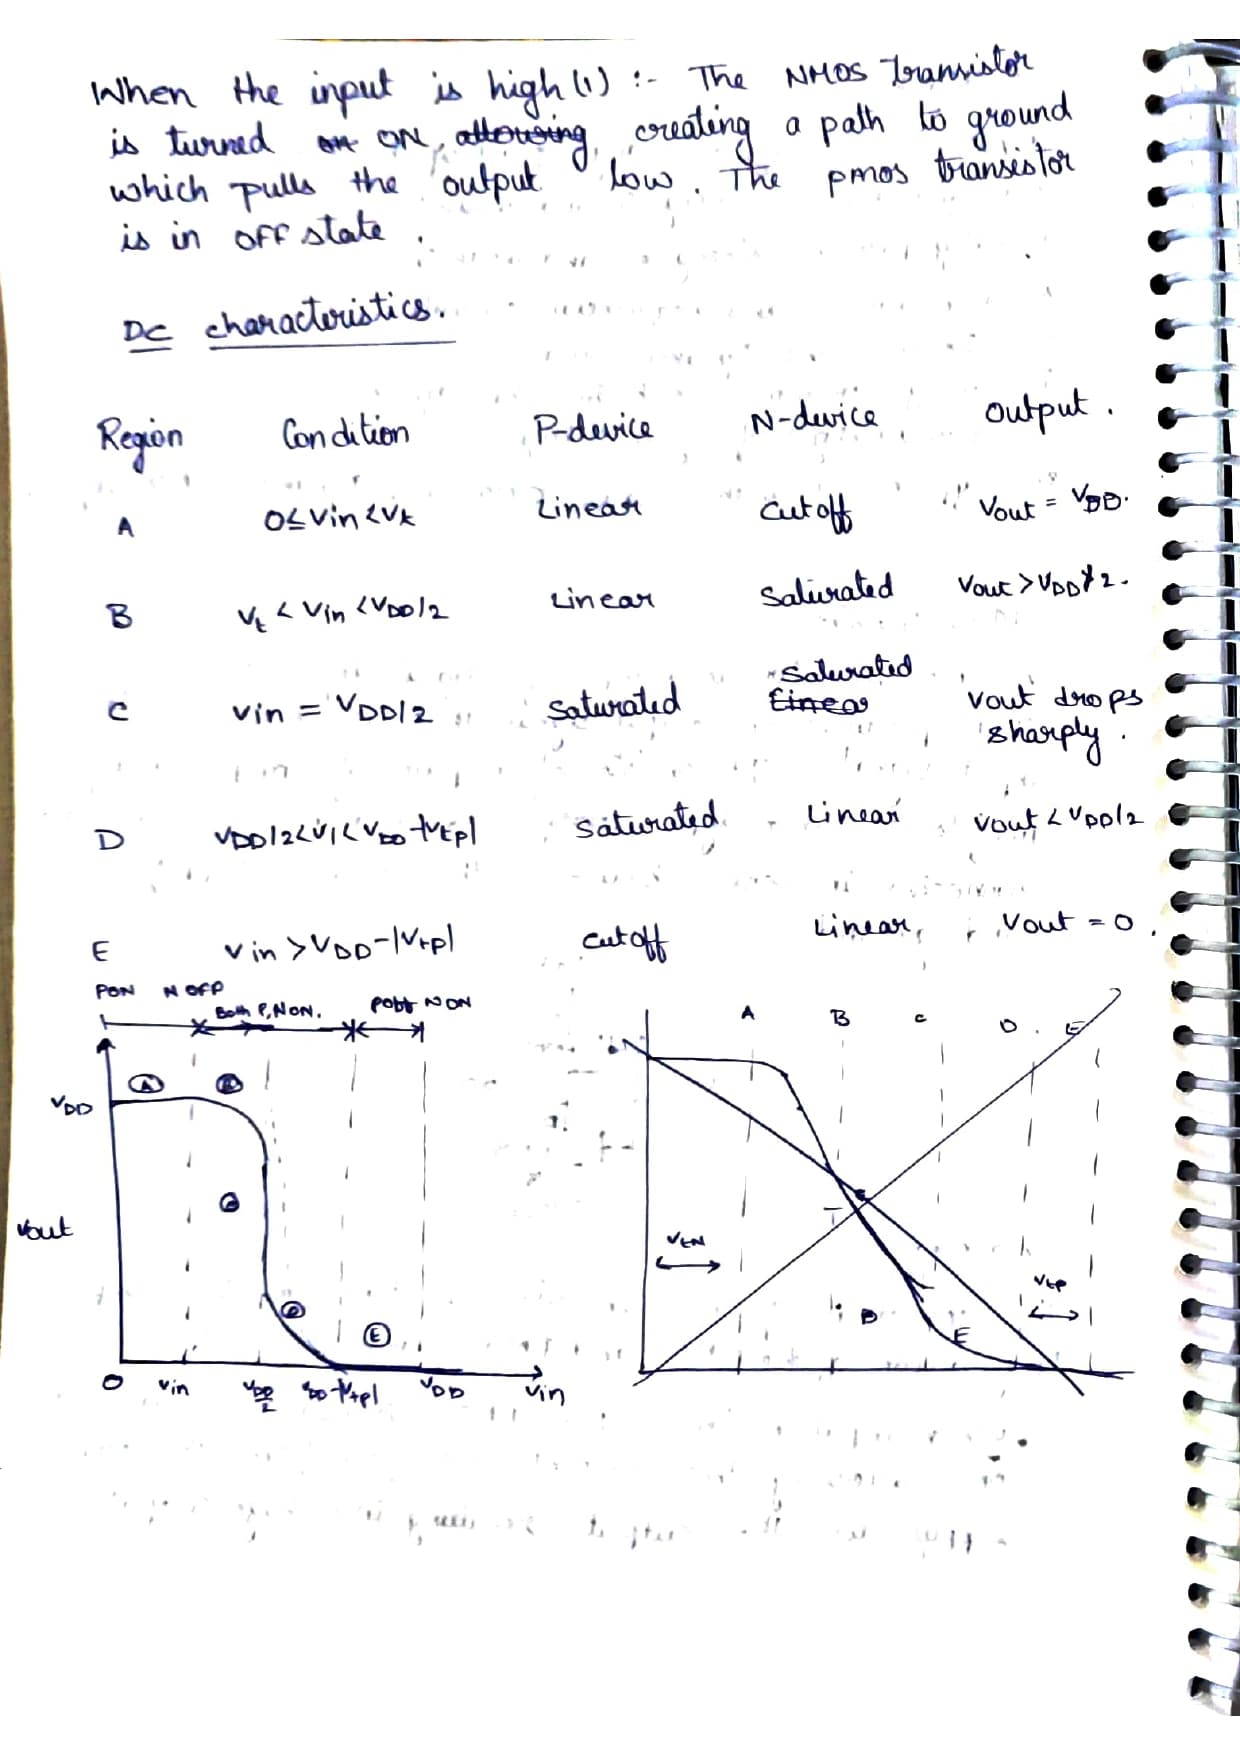 When the input is high (1) :- The NMOS transistor
is turned on ON, allowing, creating a path to ground
which pulls the output low. The pmos transistor
is in OFF state.
DC characteristics.
Region Condition P-device N-device output.
A 0≤Vin<Vt Linear Cutoff Vout = VDD.
B Vt < Vin <VDD/2 Linear Saturated Vout >VDD/2.
Saturated
C Vin = VDD/2 Saturated Linear Vout drops
sharply.
D VDD/2<Vi< VDD-|Vtp| Saturated Linear Vout < VDD/2
E Vin >VDD-|Vtp| Cutoff Linear, Vout = 0.
PON N OFF Both P,N ON. Poff N ON
A B C D E
A B
VDD
C
Vout
VtN
Vtp
D E
D E
0 Vin VDD/2 VDD-|Vtp| VDD Vin